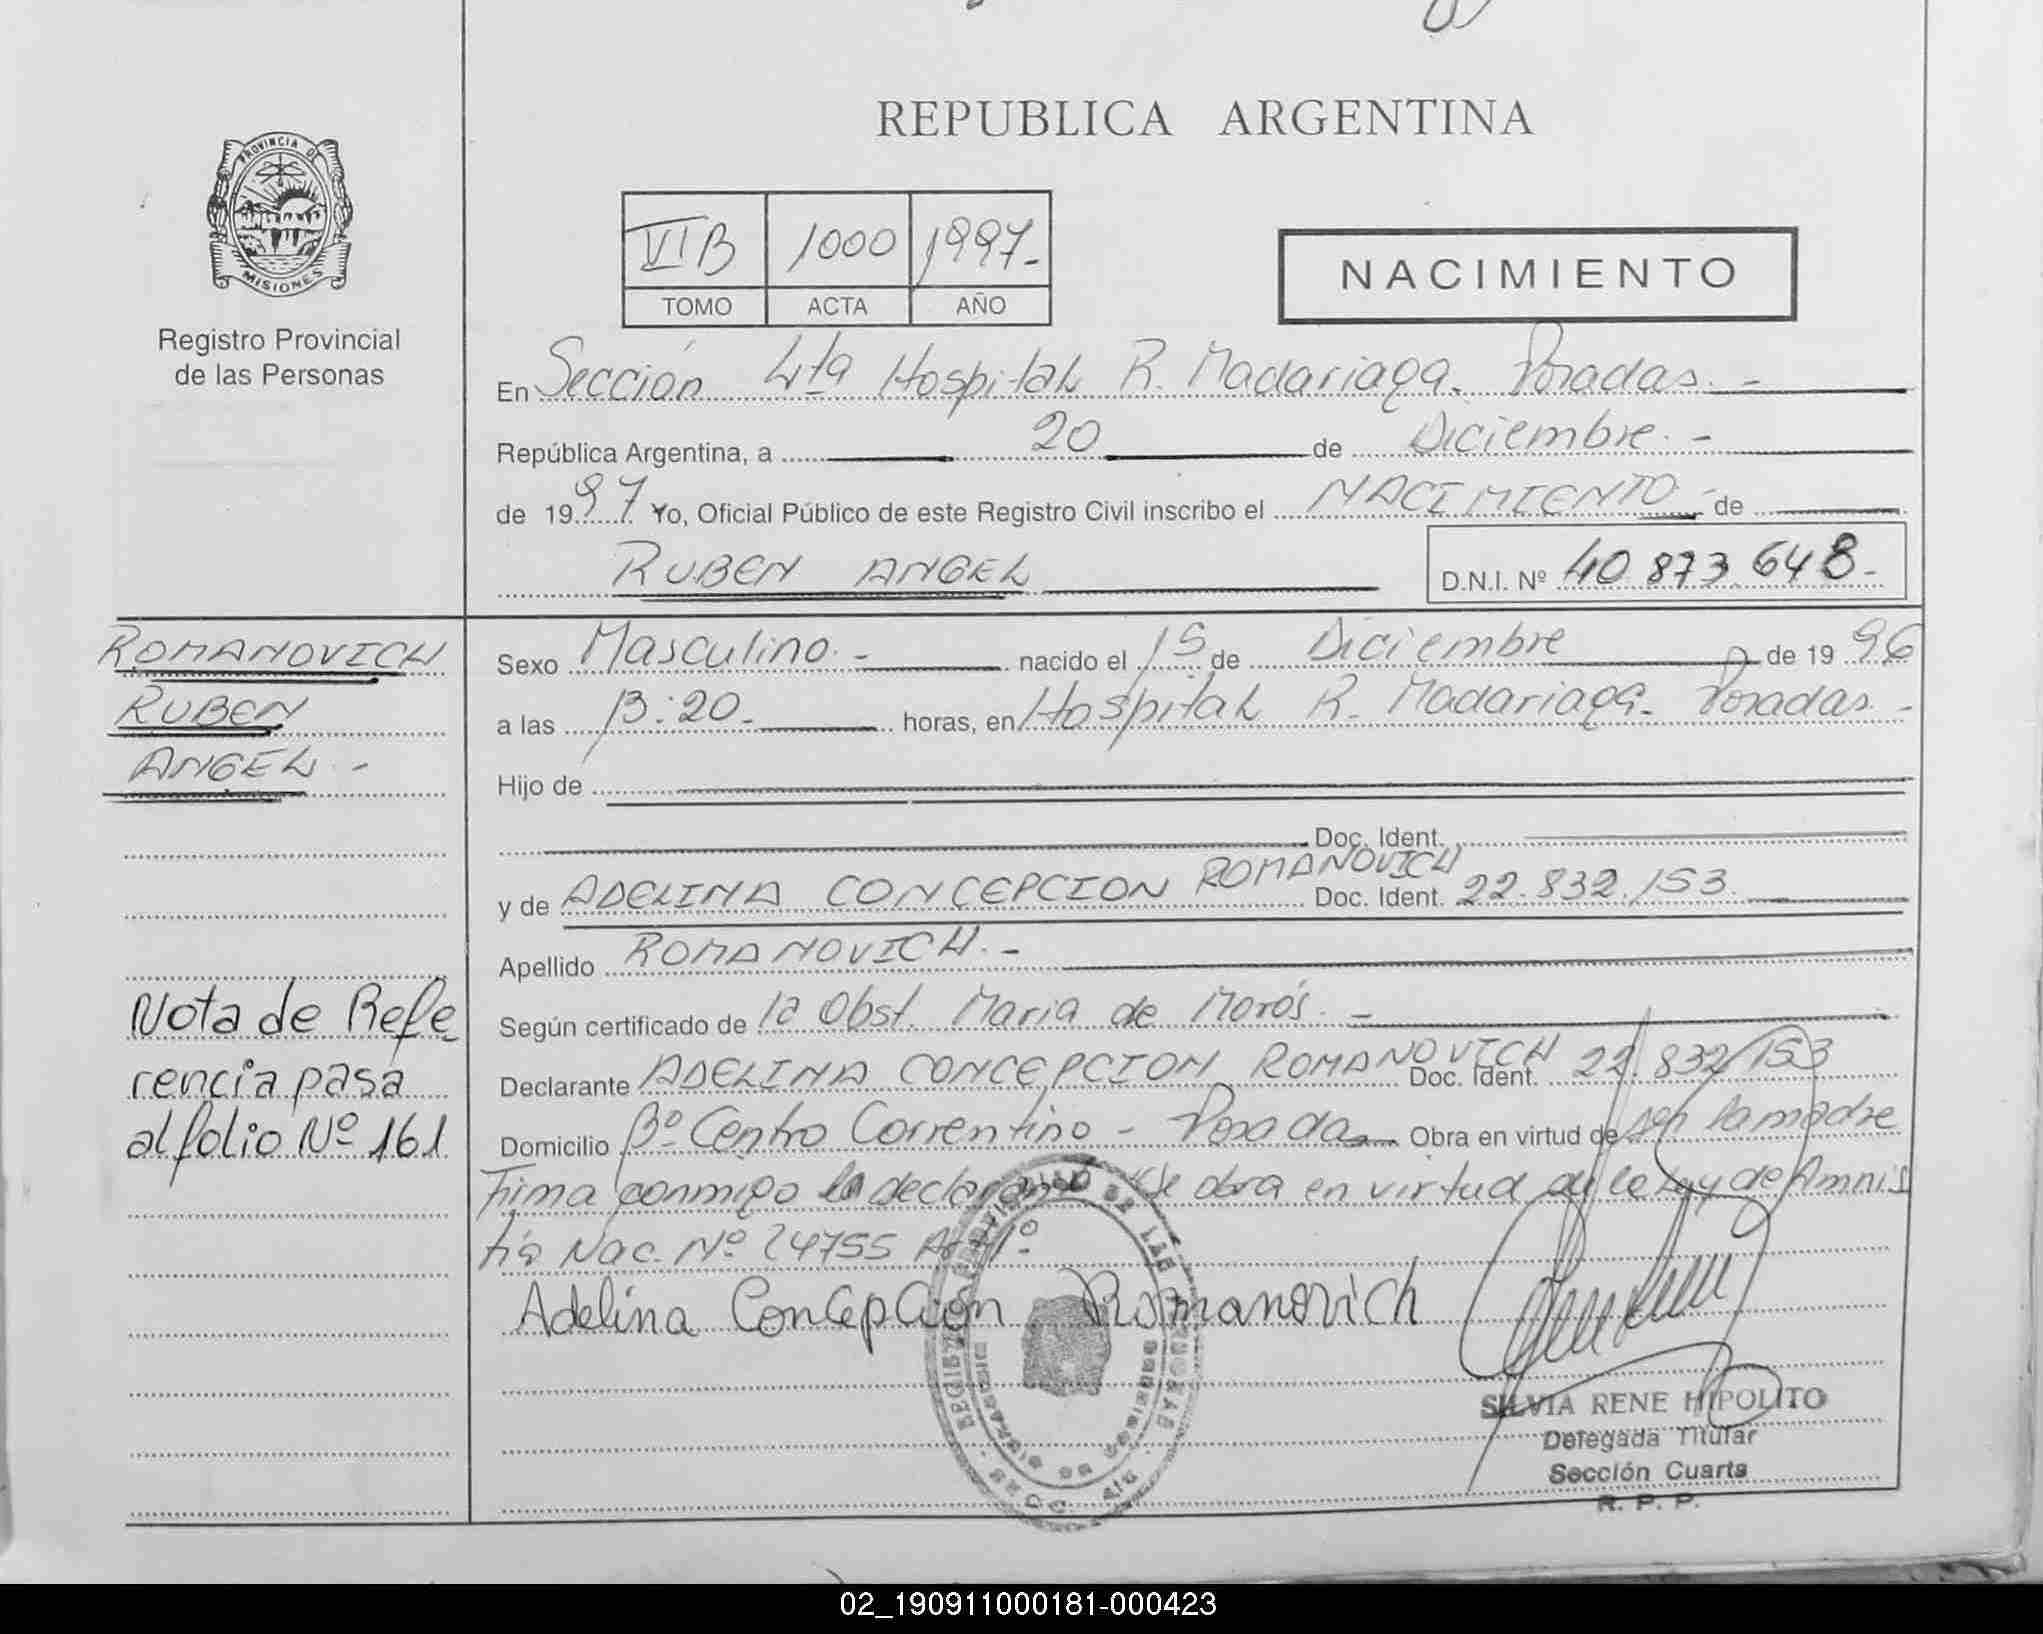 REPUBLICA ARGENTINA
PROVINCIA DE
MISIONES
Registro Provincial
de las Personas
VI B 1000 1997.-
TOMO ACTA AÑO
NACIMIENTO
En Sección 4ta Hospital R. Madariaga. Posadas.-
República Argentina, a 20 de Diciembre.-
de 1997 Yo, Oficial Público de este Registro Civil inscribo el NACIMIENTO - de
RUBEN ANGEL D.N.I. Nº 40.873.648.-
ROMANOVICH
RUBEN
ANGEL.-
Sexo Masculino.- nacido el 15 de Diciembre de 1996
a las 13:20.- horas, en Hospital R. Madariaga. Posadas.-
Hijo de
Doc. Ident.
y de ADELINA CONCEPCION ROMANOVICH Doc. Ident. 22.832.153.
Apellido ROMANOVICH.-
Según certificado de la Obst. Maria de Morós.-
Declarante ADELINA CONCEPCION ROMANOVICH Doc. Ident. 22.832.153
Domicilio Bº Centro Correntino - Posadas Obra en virtud de ser la madre
Firma conmigo la declarante. Se obra en virtud de la Ley de Amnis
tía Nac. Nº 24755 Art 1º.
Adelina Concepción Romanovich
Nota de Refe
rencia pasa
al folio Nº 161
SILVIA RENE HIPOLITO
Delegada Titular
Sección Cuarta
R. P. P.
02_190911000181-000423